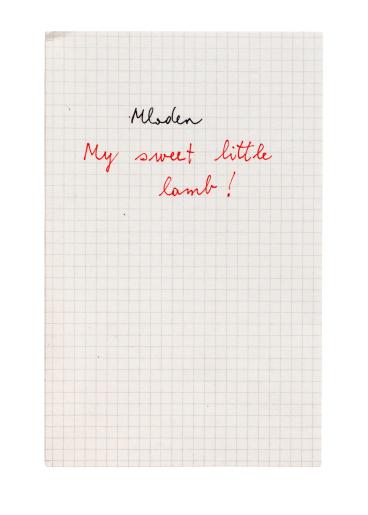 Mladen
My sweet little
lamb!